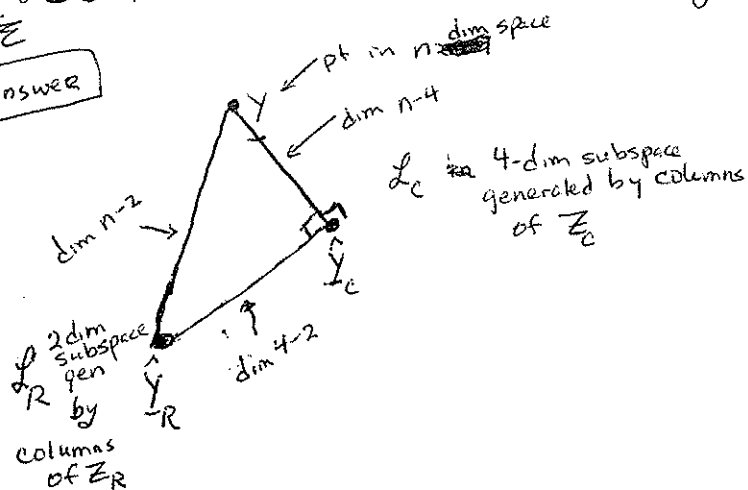 nswer
pt in n dim space
Y
dim n-4
dim n-2
ℒ_C 4-dim subspace
generated by columns
of Z_C
Ŷ_C
dim 4-2
ℒ_R 2dim
subspace
gen
by
columns
of Z_R
Ŷ_R